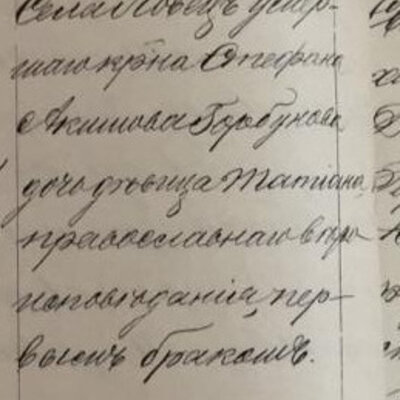 Села Ловецъ умер-
шаго кр̃на Стефана
Акимова Горбунова
дочь дѣвица Татiана,
православнаго вѣро
исповѣданiя, пер-
вымъ бракомъ.